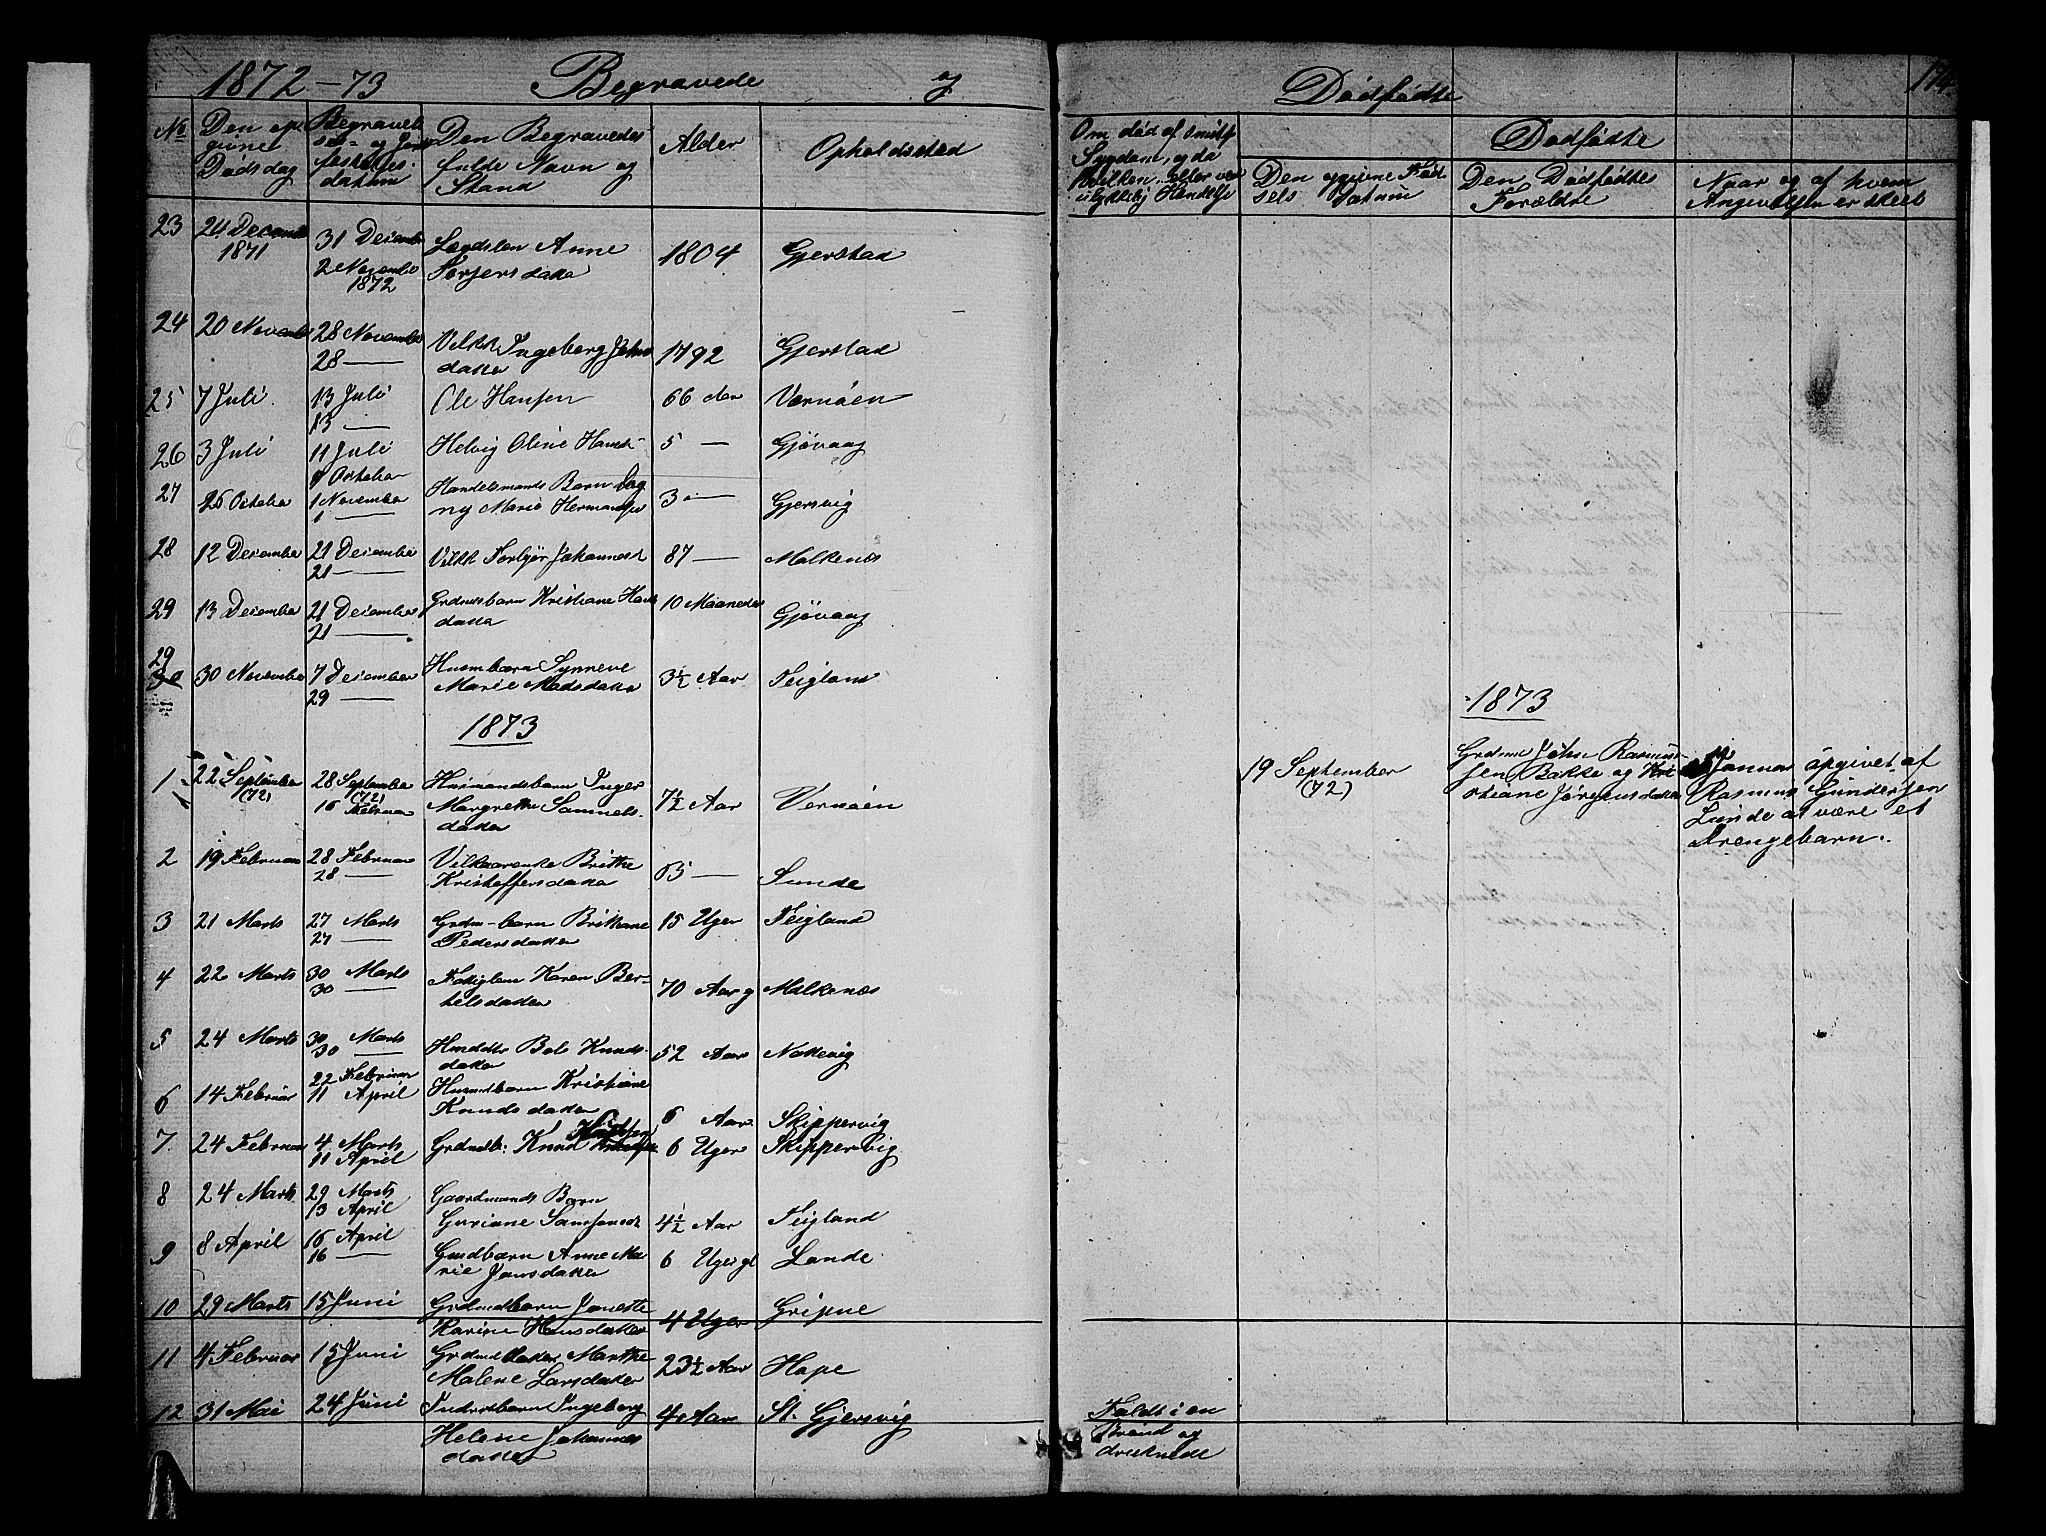 1872-73 Begravede og Dødfødte 174
No Den opgivne Dødsdag Begravelses- og Jordfæstelsesdatum Den Begravedes fulde Navn og Stand Alder Opholdssted
Om død af smitsom Sygdom, og da hvilken, eller ved ulykkelig Hændelse
Dødfødte
Den opgivne Fødselsdatum Den Dødfødtes Forældre Naar og af hvem Angivelsen er skeet
23 24 December 1871 31 December 2 November 1872 Lægdslem Anne Torgersdatter 1804 Gjerstad
24 20 November 28 November 28 — Vilkk Ingeborg Johnsdatter 1792 Gjerstad
25 7 Juli 13 Juli 13 — Ole Hansen 66 Aar Vernøen
26 3 Juli 11 Juli Oktober Helvig Oline Hansd 5 — Gjøvaag
27 26 October 1 November 1 — Handelsmands Barn Dagny Marie Hermansen 3 — Gjersvig
28 12 December 21 December 21 — Vilkk Torbjør Johannesd 87 — Malkenes
29 13 December 21 December 21 — Grdmdsbarn Kristiane Hansdatter 10 Maaneder Gjøvaag
29 30 30 November 7 December 29 — Husmbarn Synneve Marie Madsdatter 3½ Aar Teigland
1873
1 22 September (72) 28 September (72) 16 Februar Husmandsbarn Inger Margrethe Samuelsdatter 7½ Aar Vernøen
2 19 Februar 28 Februar 28 — Vilkaarenke Brithe Kristoffersdatter 65 — Sunde
3 21 Marts 27 Marts 27 — Grdm-barn Brithane Pedersdatter 15 Uger Teigland
4 22 Marts 30 Marts 30 — Fattiglem Karen Bertelsdatter 70 Aar g Malkenæs
5 24 Marts 30 Marts 30 — Bol Knudsdatter 52 Aar Nottevig
6 14 Februar 22 Februar 11 April Husmdbarn Kristiane Knudsdatter 6 Aar Skippervig
7 24 Februar 4 Marts 11 April Grdmdb: Knud Knudsen 6 Uger Skippervig
8 24 Marts 29 Marts 13 April Gaardmands Barn Guriane Samsonsd 4½ Aar Teigland
9 8 April 16 April 16 — Grmdbarn Anne Marie Jansdatter 6 Uger gl Lunde
10 29 Marts 15 Juni Grdmdbarn Janette Karine Hansdatter 4 Uger Gripne
11 4 Februar 15 Juni Grdmddatter Marthe Malene Larsdatter 23½ Aar Hope
12 31 Mai 24 Juni Inderstbarn Ingeborg Helene Johannesdatter 4 Aar St. Gjersvig
Faldt i en Brønd og druknede
1873
19 September (72) Grdmd John Rasmussen Bakke og Kristiane Jörgensdatter
Januar opgivet af Rasmus Gundersen Lunde at være et Drengebarn.